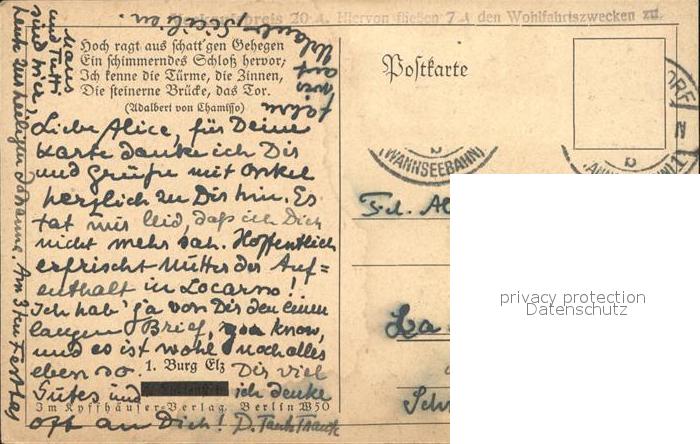 preis 20 A. Hiervon fließen 7 A den Wohlfahrtszwecken zu.
Hoch ragt aus schatt'gen Gehegen
Ein schimmerndes Schloß hervor;
Ich kenne die Türme, die Zinnen,
Die steinerne Brücke, das Tor.
(Adalbert von Chamisso)
Postkarte
(WANNSEEBAHN)
Liebe Alice, für Deine
Karte danke ich Dir
und Grüße mit Onkel
herzlich zu Dir hin. Es
tat mir leid, daß ich Dich
nicht mehr sah. Hoffentlich
erfrischt Mutter der Auf=
enthalt in Locarno!
Ich hab' ja von Dir den einen
langen Brief, you know,
und es ist wohl noch alles
eben so. Dir viel
1. Burg Elz
Gutes und ich denke
Im Kyffhäuser-Verlag, Berlin W50
oft an Dich! D. Tante
Maus
und Tutti
sind hier,
fahren
wir auf
Urlaub
Frl. Al
privacy protection
Datenschutz